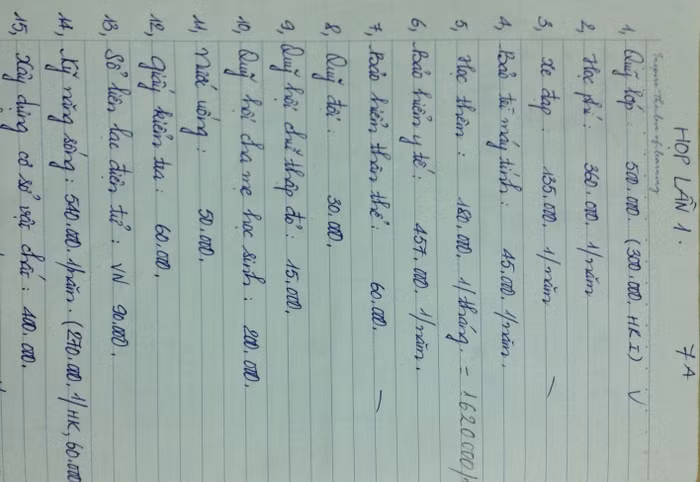 HỌP LẦN 1. 7A
1, Quỹ lớp: 500.000. (300.000. HKI) V
2, Học phí: 360.000. 1/năm
3, Xe đạp: 135.000. 1/năm –
4, Bảo trì máy tính: 45.000. 1/năm.
5, Học thêm: 180.000. 1/tháng. = 1620000/
6, Bảo hiểm y tế: 457.000. 1/năm.
7, Bảo hiểm thân thể: 60.000. –
8, Quỹ đội: 30.000.
9, Quỹ hội chữ thập đỏ: 15.000.
10, Quỹ hội cha mẹ học sinh: 200.000.
11, Nước uống: 50.000.
12, Giấy kiểm tra: 60.000.
13, Sổ liên lạc điện tử: VN 90.000.
14, Kỹ năng sống: 540.000. 1/năm. (270.000. 1/HK, 60.000
15, Xây dựng cơ sở vật chất: 400.000.